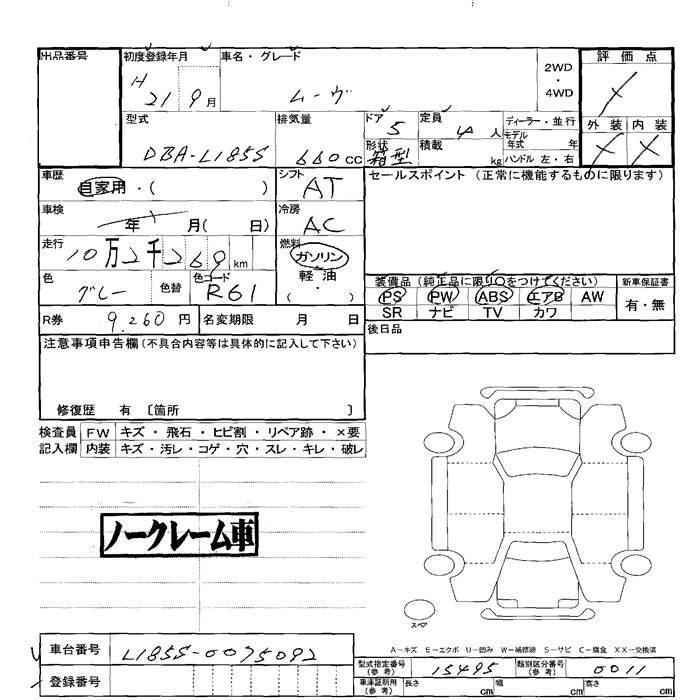 出品番号
初度登録年月 H 21 9月
車名・グレード ムーヴ
2WD・4WD
評価点
型式 DBA-L185S
排気量 660cc
ドア 5
形状 箱型
定員 4人
積載 kg
ディーラー・並行
モデル年式 年
ハンドル 左・右
外装 内装
車歴 自家用・( )
シフト AT
セールスポイント (正常に機能するものに限ります)
車検 年 月( 日)
冷房 AC
走行 10万2千269km
燃料 ガソリン・軽油・( )
色 グレー 色替
色コード R61
装備品 (純正品に限り○をつけてください)
PS PW ABS エアB AW
SR ナビ TV カワ
新車保証書
有・無
R券 9,260円
名変期限 月 日
後日品
注意事項申告欄 (不具合内容等は具体的に記入して下さい)
修復歴 有 〔箇所 〕
検査員 FW キズ・飛石・ヒビ割・リペア跡・×要
記入欄 内装 キズ・汚レ・コゲ・穴・スレ・キレ・破レ
ノークレーム車
スペア
A-キズ E-エクボ U-凹み W-補修跡 S-サビ C-腐食 XX-交換済
車台番号 L185S-0075092
登録番号
型式指定番号(参考) 15495
類別区分番号(参考) 0011
車庫証明用(参考) 長さ cm 幅 cm 高さ cm